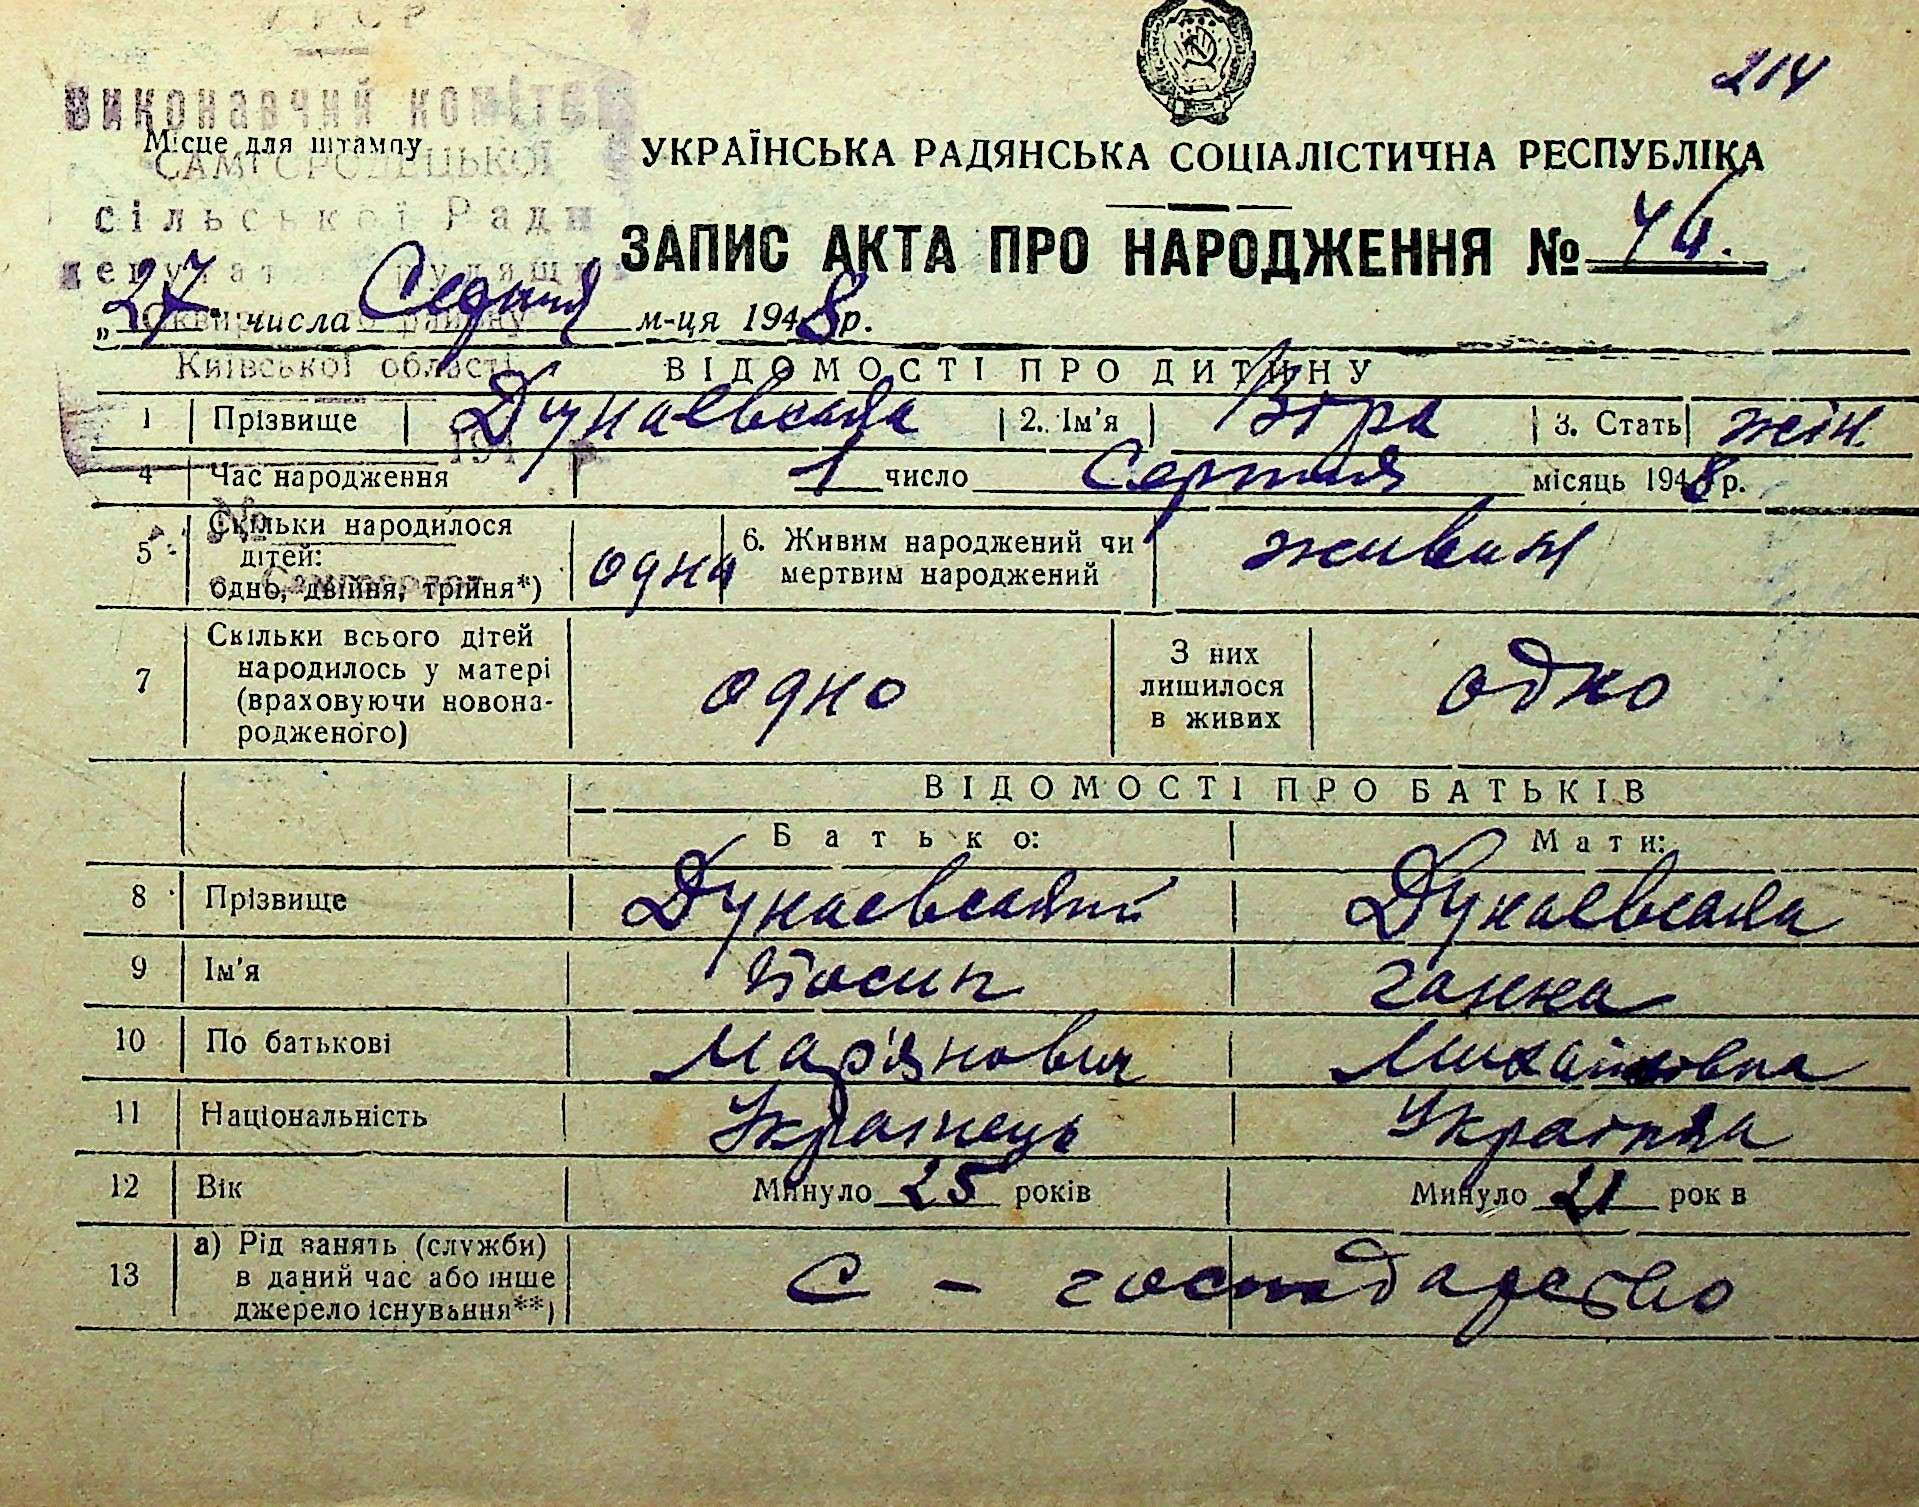 УРСР
214
Виконавчий комітет
Місце для штампу
САМГОРОДЕЦЬКОЇ
УКРАЇНСЬКА РАДЯНСЬКА СОЦІАЛІСТИЧНА РЕСПУБЛІКА
сільської Ради
ЗАПИС АКТА ПРО НАРОДЖЕННЯ №
„27" числа Серпня м-ця 1948 р.
Київської області
ВІДОМОСТІ ПРО ДИТИНУ
1 Прізвище Дунаєвська 2. Ім'я Віра 3. Стать жін.
194 р.
4 Час народження 1 число Серпня місяць 1948 р.
№
5 Скільки народилося дітей: одно, двійня, трійня*) одна 6. Живим народжений чи мертвим народжений живим
7 Скільки всього дітей народилось у матері (враховуючи новонародженого) одно З них лишилося в живих одно
ВІДОМОСТІ ПРО БАТЬКІВ
Батько: Мати:
8 Прізвище Дунаєвський Дунаєвська
9 Ім'я Йосип Ганна
10 По батькові Мар'янович Михайловна
11 Національність Українець Українка
12 Вік Минуло 25 років Минуло 21 рок в
13 а) Рід занять (служби) в даний час або інше джерело існування**) С - господарство